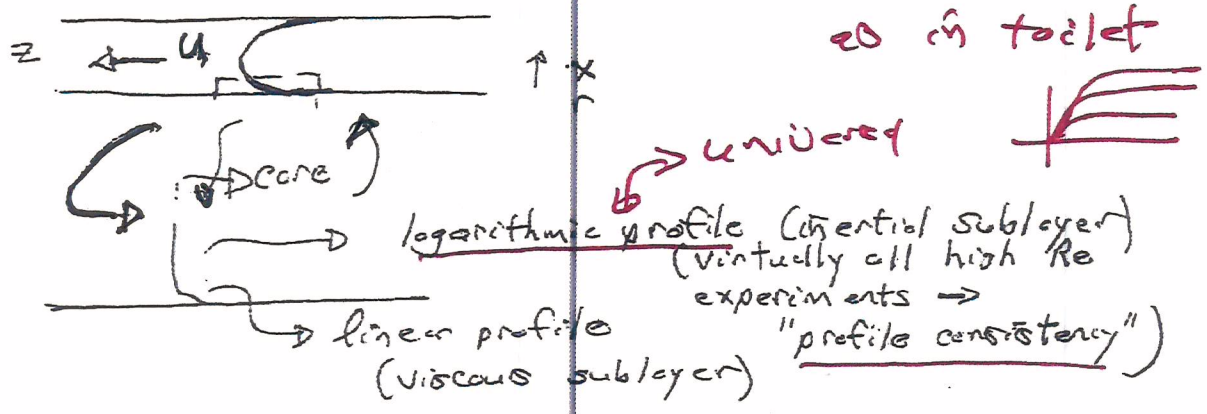 as in toilet
z
u
x
r
universal
core
logarithmic profile (inertial sublayer)
(virtually all high Re
experiments →
"profile consistency")
linear profile
(viscous sublayer)